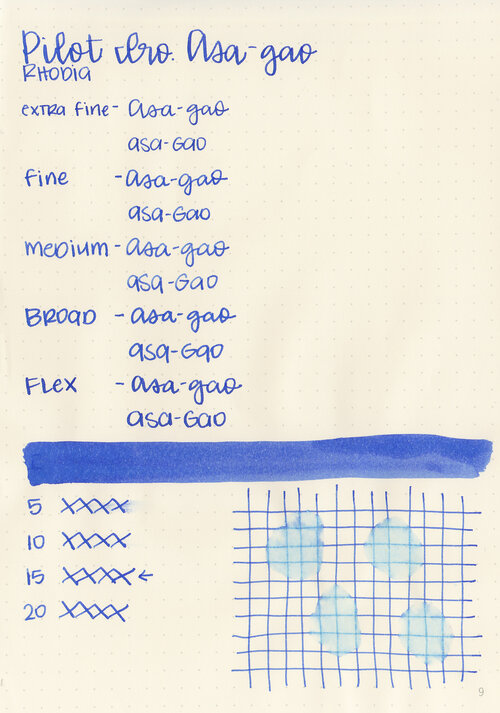 Pilot Iro. Asa-gao
Rhodia
extra fine - asa-gao
asa-gao
fine - asa-gao
asa-gao
medium - asa-gao
asa-gao
Broad - asa-gao
asa-gao
Flex - asa-gao
asa-gao
5 XXXX
10 XXXX
15 XXXX ←
20 XXXX
9